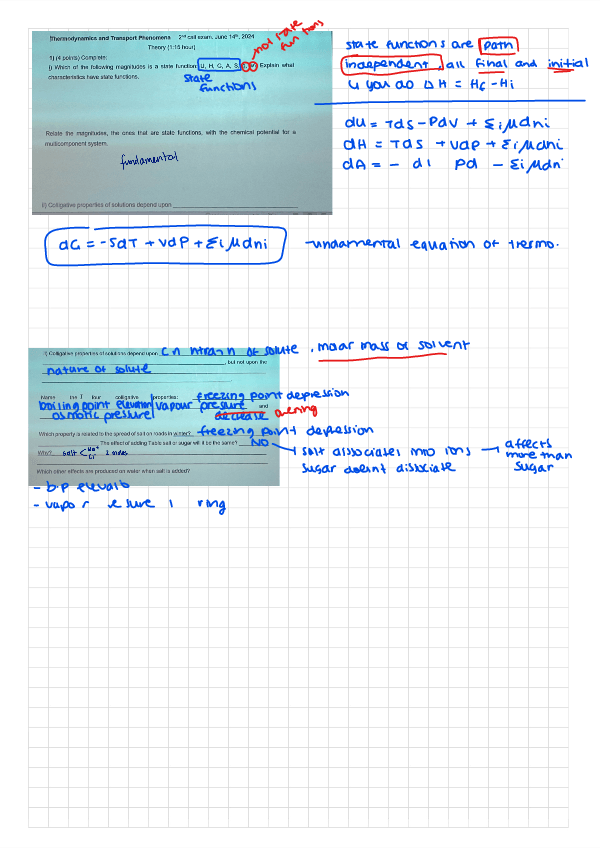 Thermodynamics and Transport Phenomena 2nd call exam. June 14th, 2024
Theory (1:15 hour)
not state functions
1) (4 points) Complete:
i) Which of the following magnitudes is a state function: U, H, G, A, S, Explain what
characteristics have state functions.
state
functions
state functions are path
independent, all final and initial
you do ΔH = Hf - Hi
dU = TdS - PdV + Σi μdni
dH = TdS + VdP + Σi μdni
dA = - d Pd - Σi μdn
Relate the magnitudes, the ones that are state functions, with the chemical potential for a
multicomponent system.
fundamental
ii) Colligative properties of solutions depend upon
dG = -SdT + VdP + Σi μdni
undamental equation of thermo.
i) Colligative properties of solutions depend upon of solute , molar mass of solvent
, but not upon the
nature of solute
Name the four colligative properties: freezing point depression
boiling point elevation vapour pressure and
osmotic pressure decrease
Which property is related to the spread of salt on roads in winter? freezing point depression
The effect of adding Table salt or sugar will it be the same? NO
Why? salt Na+ Cl- 2 moles
salt dissociates into ions
sugar doesnt dissociate
affects
more than
sugar
Which other effects are produced on water when salt is added?
- b.p